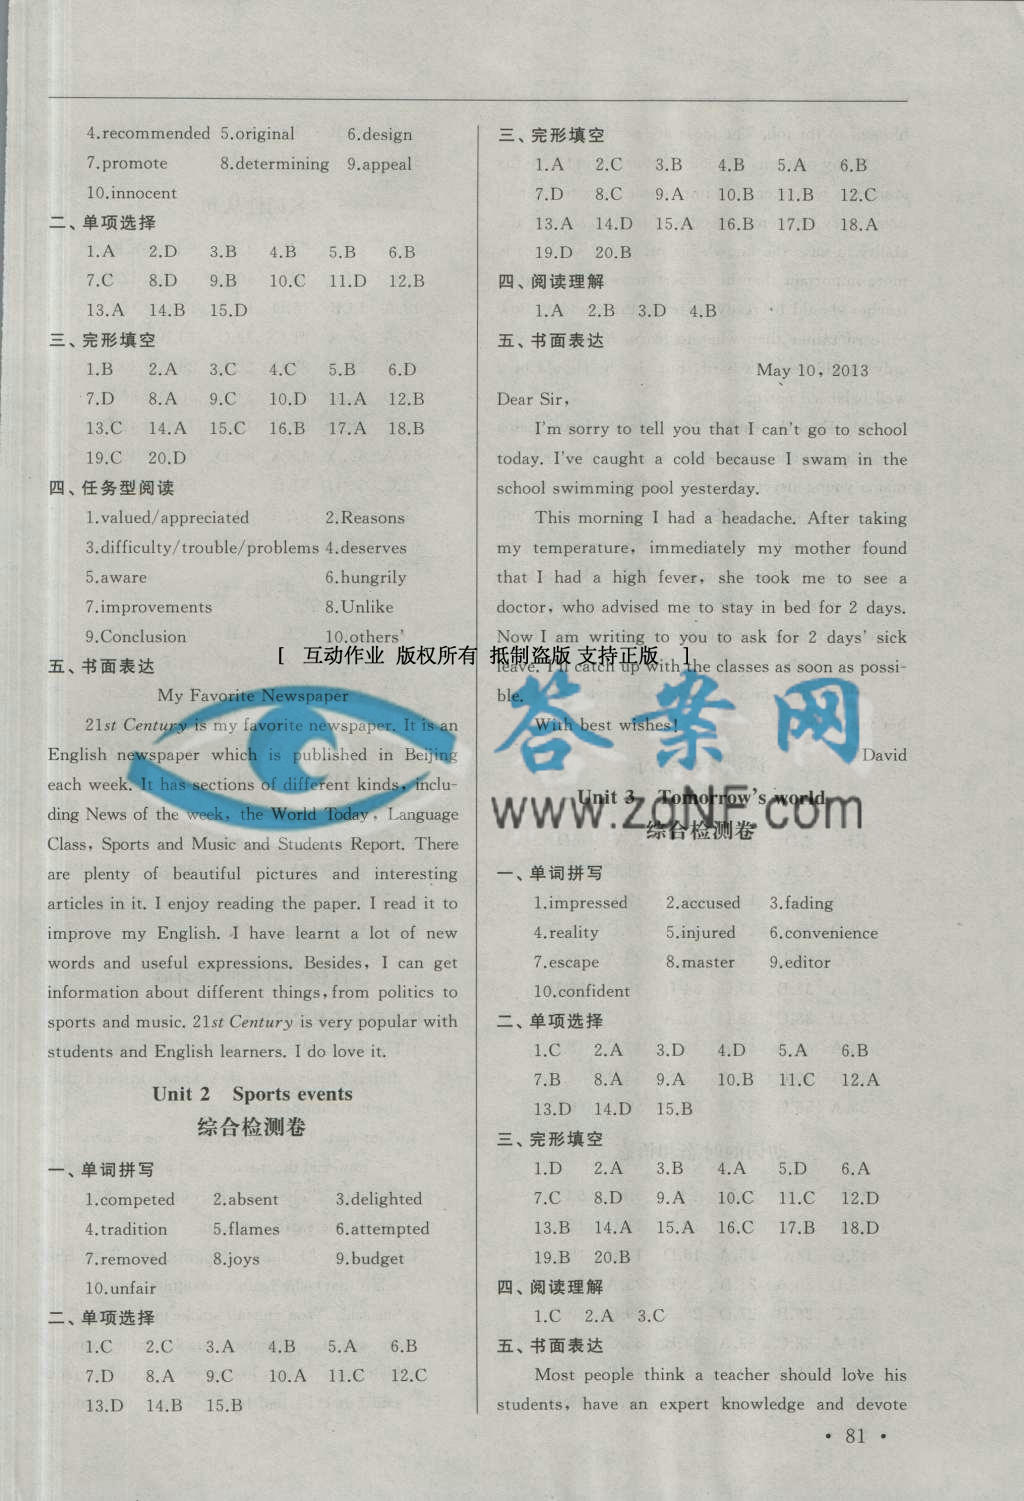 4.recommended 5.original 6.design
7.promote 8.determining 9.appeal
10.innocent
二、单项选择
1.A 2.D 3.B 4.B 5.B 6.B
7.C 8.D 9.B 10.C 11.D 12.B
13.A 14.B 15.D
三、完形填空
1.B 2.A 3.C 4.C 5.B 6.D
7.D 8.A 9.C 10.D 11.A 12.B
13.C 14.A 15.C 16.B 17.A 18.B
19.C 20.D
四、任务型阅读
1.valued/appreciated 2.Reasons
3.difficulty/trouble/problems 4.deserves
5.aware 6.hungrily
7.improvements 8.Unlike
9.Conclusion 10.others'
五、书面表达
My Favorite Newspaper
21st Century is my favorite newspaper. It is an
English newspaper which is published in Beijing
each week. It has sections of different kinds, inclu-
ding News of the week, the World Today, Language
Class, Sports and Music and Students Report. There
are plenty of beautiful pictures and interesting
articles in it. I enjoy reading the paper. I read it to
improve my English. I have learnt a lot of new
words and useful expressions. Besides, I can get
information about different things, from politics to
sports and music. 21st Century is very popular with
students and English learners. I do love it.
Unit 2 Sports events
综合检测卷
一、单词拼写
1.competed 2.absent 3.delighted
4.tradition 5.flames 6.attempted
7.removed 8.joys 9.budget
10.unfair
二、单项选择
1.C 2.C 3.A 4.B 5.A 6.B
7.D 8.A 9.C 10.A 11.C 12.C
13.D 14.B 15.B
三、完形填空
1.A 2.C 3.B 4.B 5.A 6.B
7.D 8.C 9.A 10.B 11.B 12.C
13.A 14.D 15.A 16.B 17.D 18.A
19.D 20.B
四、阅读理解
1.A 2.B 3.D 4.B
五、书面表达
May 10, 2013
Dear Sir,
I'm sorry to tell you that I can't go to school
today. I've caught a cold because I swam in the
school swimming pool yesterday.
This morning I had a headache. After taking
my temperature, immediately my mother found
that I had a high fever, she took me to see a
doctor, who advised me to stay in bed for 2 days.
Now I am writing to you to ask for 2 days' sick
leave. I'll catch up with the classes as soon as possi-
ble.
With best wishes!
David
Unit 3 Tomorrow's world
综合检测卷
一、单词拼写
1.impressed 2.accused 3.fading
4.reality 5.injured 6.convenience
7.escape 8.master 9.editor
10.confident
二、单项选择
1.C 2.A 3.D 4.D 5.A 6.B
7.B 8.A 9.A 10.B 11.C 12.A
13.D 14.D 15.B
三、完形填空
1.D 2.A 3.B 4.A 5.D 6.A
7.C 8.D 9.A 10.C 11.C 12.D
13.B 14.A 15.A 16.C 17.B 18.D
19.B 20.B
四、阅读理解
1.C 2.A 3.C
五、书面表达
Most people think a teacher should love his
students, have an expert knowledge and devote
• 81 •
[ 互动作业 版权所有 抵制盗版 支持正版 ]
答案网
www.zqnf.com